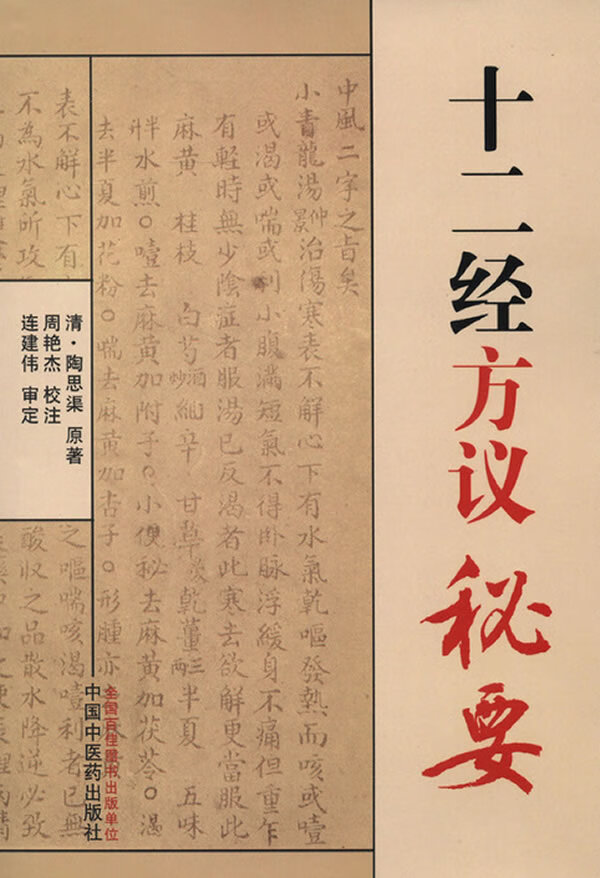 十二经方议秘要
中風二字之旨矣
小青龍湯仲景治傷寒表不解心下有水氣乾嘔發熱而咳或噎
或渴或喘或利小腹滿短氣不得卧脉浮緩身不痛但重乍
有軽時無少陰症者服湯已反渴者此寒去欲解更當服此
麻黄 桂枝 白芍酒炒 細辛 甘草炙 乾薑三兩 半夏 五味
水煎。噎去麻黄加附子。小便秘去麻黄加茯苓。渴
去半夏加花粉。喘去麻黄加杏子。形腫亦
表不解心下有
不為水氣所攻
之嘔喘咳渴噎利者已無
酸收之品散水降逆必致
清·陶思渠 原著
周艳杰 校注
连建伟 审定
全国百佳图书出版单位
中国中医药出版社